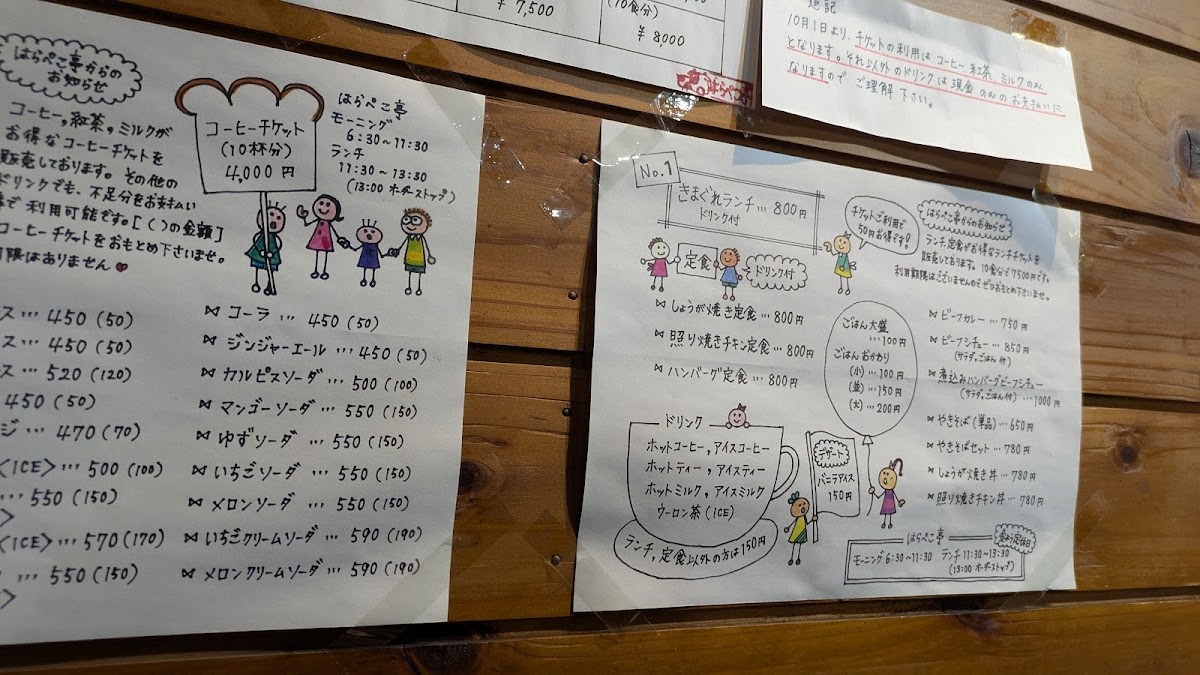 ¥ 7,500
(10食分)
¥ 8,000
はらぺこ
追記
10月1日より、チケットの利用は コーヒー 紅茶 ミルクのみ
となります。それ以外のドリンクは 現金 のみ のお支払いに
なりますので ご理解 下さい。
はらぺこ亭からの
お知らせ
コーヒー,紅茶,ミルクが
お得なコーヒーチケットを
販売しております。その他の
ドリンクでも、不足分をお支払い
で利用可能です。[( )の金額]
コーヒーチケットをおもとめ下さいませ。
限はありません
コーヒーチケット
(10杯分)
4,000 円
はらぺこ亭
モーニング
6:30~11:30
ランチ
11:30~13:30
(13:00 オーダーストップ)
ス… 450 (50)
ス… 450 (50)
ス… 520 (120)
450 (50)
ジ … 470 (70)
<ICE>… 500 (100)
… 550 (150)
<ICE>… 570 (170)
… 550 (150)
コーラ … 450 (50)
ジンジャーエール … 450 (50)
カルピスソーダ … 500 (100)
マンゴーソーダ … 550 (150)
ゆずソーダ … 550 (150)
いちごソーダ … 550 (150)
メロンソーダ … 550 (150)
いちごクリームソーダ … 590 (190)
メロンクリームソーダ … 590 (190)
No.1
きまぐれランチ… 800円
ドリンク付
チケットご利用で
50円お得です!
はらぺこ亭からのお知らせ
ランチ,定食がお得なランチチケットを
販売しております。10食分で7500円です。
利用期限はございませんのでぜひおもとめ下さいませ。
定食
ドリンク付
しょうが焼き定食… 800円
照り焼きチキン定食… 800円
ハンバーグ定食 … 800円
ごはん大盛
… 100円
ごはん おかわり
(小)… 100円
(並)… 150円
(大)… 200円
ビーフカレー … 750円
ビーフシチュー … 850円
(サラダ,ごはん付)
煮込みハンバーグビーフシチュー
(サラダ,ごはん付) … 1000円
やきそば(単品)… 650円
やきそばセット … 780円
しょうが焼き丼 … 780円
照り焼きチキン丼 … 780円
ドリンク
ホットコーヒー,アイスコーヒー
ホットティー,アイスティー
ホットミルク,アイスミルク
ウーロン茶(ICE)
ランチ,定食以外の方は150円
デザート
バニラアイス
150円
はらぺこ亭
モーニング 6:30~11:30 ランチ 11:30~13:30
(13:00 オーダーストップ)